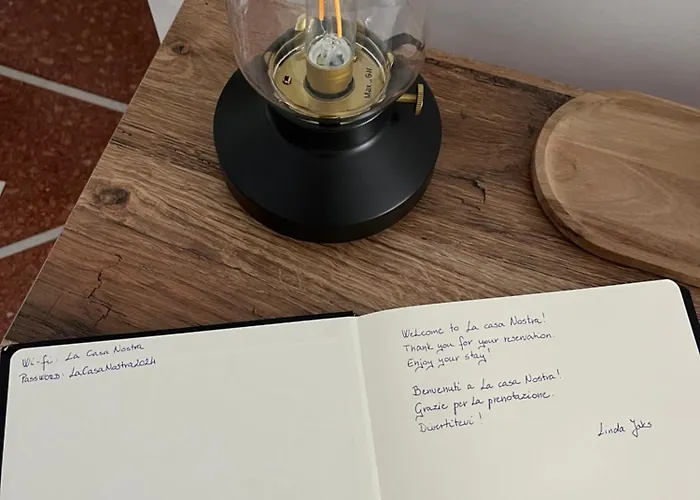 Max. 6W
Wi-fi: La Casa Nostra
Password: LaCasaNostra2024
Welcome to La casa Nostra!
Thank you for your reservation.
Enjoy your stay!
Benvenuti a La casa Nostra!
Grazie per la prenotazione.
Divertitevi!
Linda Jaks